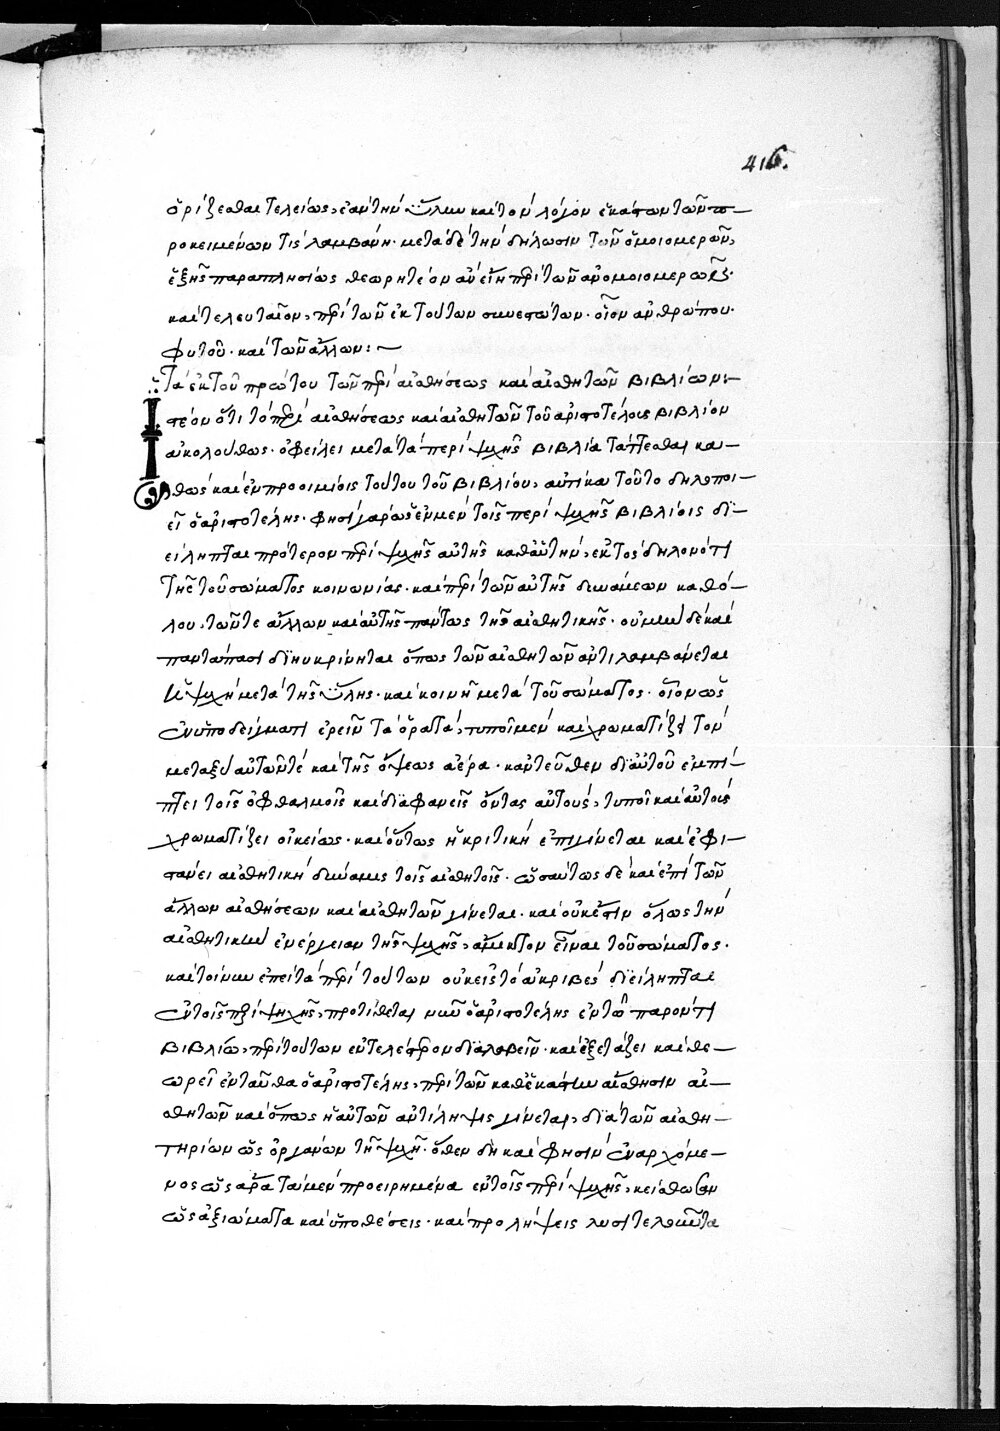 416.
ὁρίζεσθαι τελείως, ἐὰν τὴν ὕλην καὶ τὸν λόγον ἑκάστων τῶν π
ροκειμένων τὶς λαμβάνῃ· μετὰ δὲ τὴν δήλωσιν τῶν ὁμοιομερῶν,
ἑξῆς παραπλησίως θεωρητέον ἂν εἴη περὶ τῶν ἀνομοιομερῶν·
καὶ τελευταῖον, περὶ τῶν ἐκ τούτων συνεστώτων· οἷον ἀνθρώπου·
φυτοῦ· καὶ τῶν ἄλλων:~
Τὰ ἐκ τοῦ πρώτου τῶν περὶ αἰσθήσεως καὶ αἰσθητῶν βιβλίων:
Ἰστέον ὅτι τὸ περὶ αἰσθήσεως καὶ αἰσθητῶν τοῦ ἀριστοτέλους βιβλίον
ἀκολούθως· ὀφείλει μετὰ τὰ περὶ ψυχῆς βιβλία τάττεσθαι και
θὼς καὶ ἐν προοιμίοις τούτου τοῦ βιβλίου, αὐτίκα τοῦτο δηλοποι
εῖ ὁ ἀριστοτέλης· φησὶ γὰρ ὡς ἐν μὲν τοῖς περὶ ψυχῆς βιβλίοις δι
είληπται πρότερον περὶ ψυχῆς αὐτῆς καθ' αὑτήν, ἐκτὸς δηλονότι
τῆς τοῦ σώματος κοινωνίας· καὶ περὶ τῶν αὐτῆς δυνάμεων καθό
λου, τῶν τε ἄλλων καὶ αὐτῆς πάντως τῆς αἰσθητικῆς· οὐ μὴν δὲ καὶ
παντάπασι διηυκρίνηται ὅπως τῶν αἰσθητῶν ἀντιλαμβάνεται
ἡ ψυχὴ μετὰ τῆς ὕλης· καὶ κοινῇ μετὰ τοῦ σώματος· οἷον ὡς
ἐν ὑποδείγματι ἐρεῖν τὰ ὁρατὰ, τυποῖ μὲν καὶ χρωματίζει τὸν
μεταξὺ αὐτῶν τὲ καὶ τῆς ὄψεως ἀέρα· κἀντεῦθεν δι' αὐτοῦ ἐμπί
πτει τοῖς ὀφθαλμοῖς καὶ διαφανεῖς ὄντας αὐτοὺς, τυποῖ καὶ αὐτοὺς
χρωματίζει οἰκείως· καὶ οὕτως ἡ κριτικὴ ἐπιγίνεται καὶ ἐφι
στάνει αἰσθητικὴ δύναμις τοῖς αἰσθητοῖς· ὡσαύτως δὲ καὶ ἐπὶ τῶν
ἄλλων αἰσθήσεων καὶ αἰσθητῶν γίνεται· καὶ οὐκ ἔστιν ὅλως τὴν
αἰσθητικὴν ἐνέργειαν τῆς ψυχῆς, ἄμικτον εἶναι τοῦ σώματος·
καὶ τοίνυν ἐπεὶ τὰ περὶ τούτων οὐκ εἰς τὸ ἀκριβὲς διείληπται
ἐν τοῖς περὶ ψυχῆς, προτίθεται νῦν ὁ ἀριστοτέλης ἐν τῷ παρόντι
βιβλίῳ, περὶ τούτων ἐντελέστερον διαλαβεῖν· καὶ ἐξετάζει καὶ θε
ωρεῖ ἐνταῦθα ὁ ἀριστοτέλης, περὶ τῶν καθ' ἑκάστην αἴσθησιν αἰ
σθητῶν καὶ ὅπως ἡ αὐτῶν ἀντίληψις γίνεται, διὰ τῶν αἰσθη
τηρίων ὡς ὀργάνων τῇ ψυχῇ· ὅθεν δὴ καὶ φησὶν ἐναρχόμε
νος ὡς ἄρα τὰ μὲν προειρημένα ἐν τοῖς περὶ ψυχῆς, κείσθωσαν
ὡς ἀξιώματα καὶ ὑποθέσεις· καὶ προλήψεις λυσιτελοῦντα